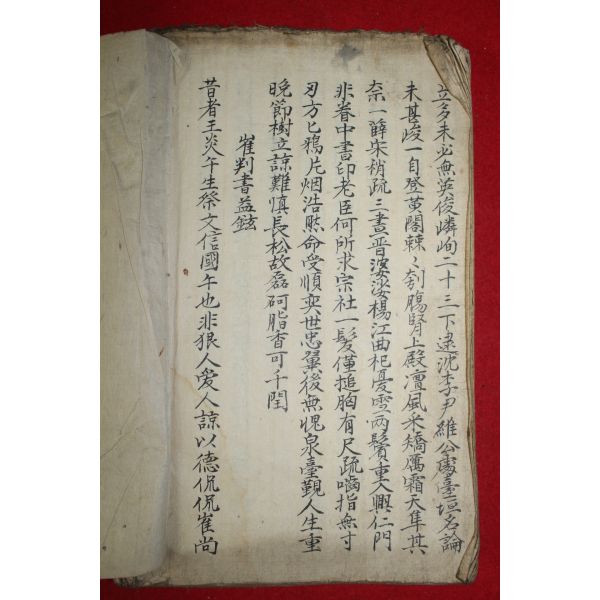 立多未必無英俊嶙峋二十三下逮沈李尹羅公處臺垣名論
未甚峻一自登黃閣棘〻刳腸腎上殿凜風采矯厲霜天隼其
奈一薛宋稍疏三晝晋婆娑楊江曲杞憂雪兩鬢重入興仁門
非眷中書印老臣何所求宗社一髮僅搥胸有尺疏嚙指無寸
刃方匕鴉片烟浩然命受順奕世忠翼後無愧泉臺覲人生重
晩節樹立諒難慎長松故磊砢脂香可千閏
崔判書益鉉
昔者王炎午生祭文信國午也非狠人愛人諒以德侃侃崔尚